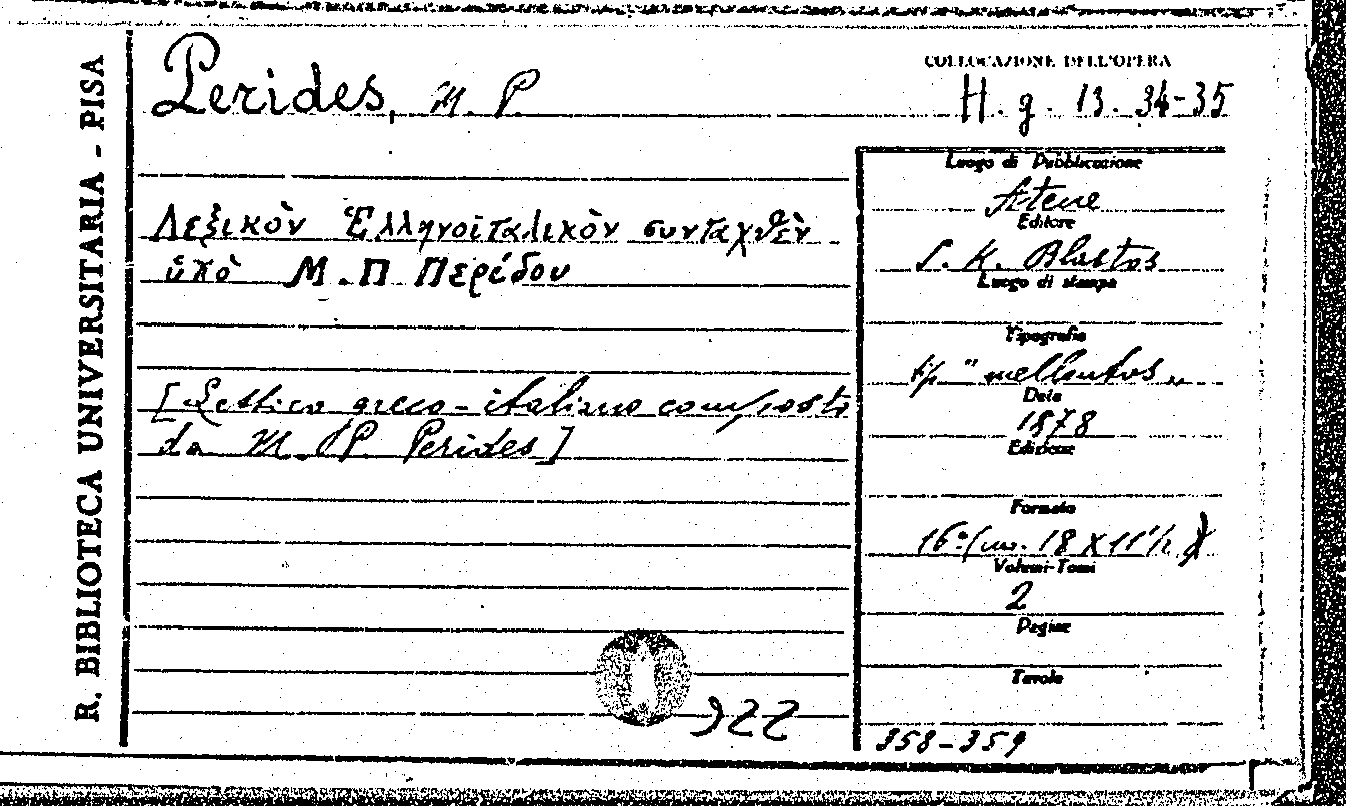 R. BIBLIOTECA UNIVERSITARIA - PISA
Perides, M. P.
COLLOCAZIONE DELL'OPERA
H. g. 13. 34-35
Λεξικὸν Ἑλληνοϊταλικὸν συνταχθὲν
ὑπὸ Μ.Π Περίδου
[Lessico greco-italiano composto
da M. P. Perides]
Luogo di Pubblicazione
Atene
Editore
S. K. Blastos
Luogo di stampa
Tipografia
tip "mellontos"
Data
1878
Edizione
Formato
16º (cm. 18 X 11 1/2)
Volumi-Tomi
2
Pagine
Tavole
358-359